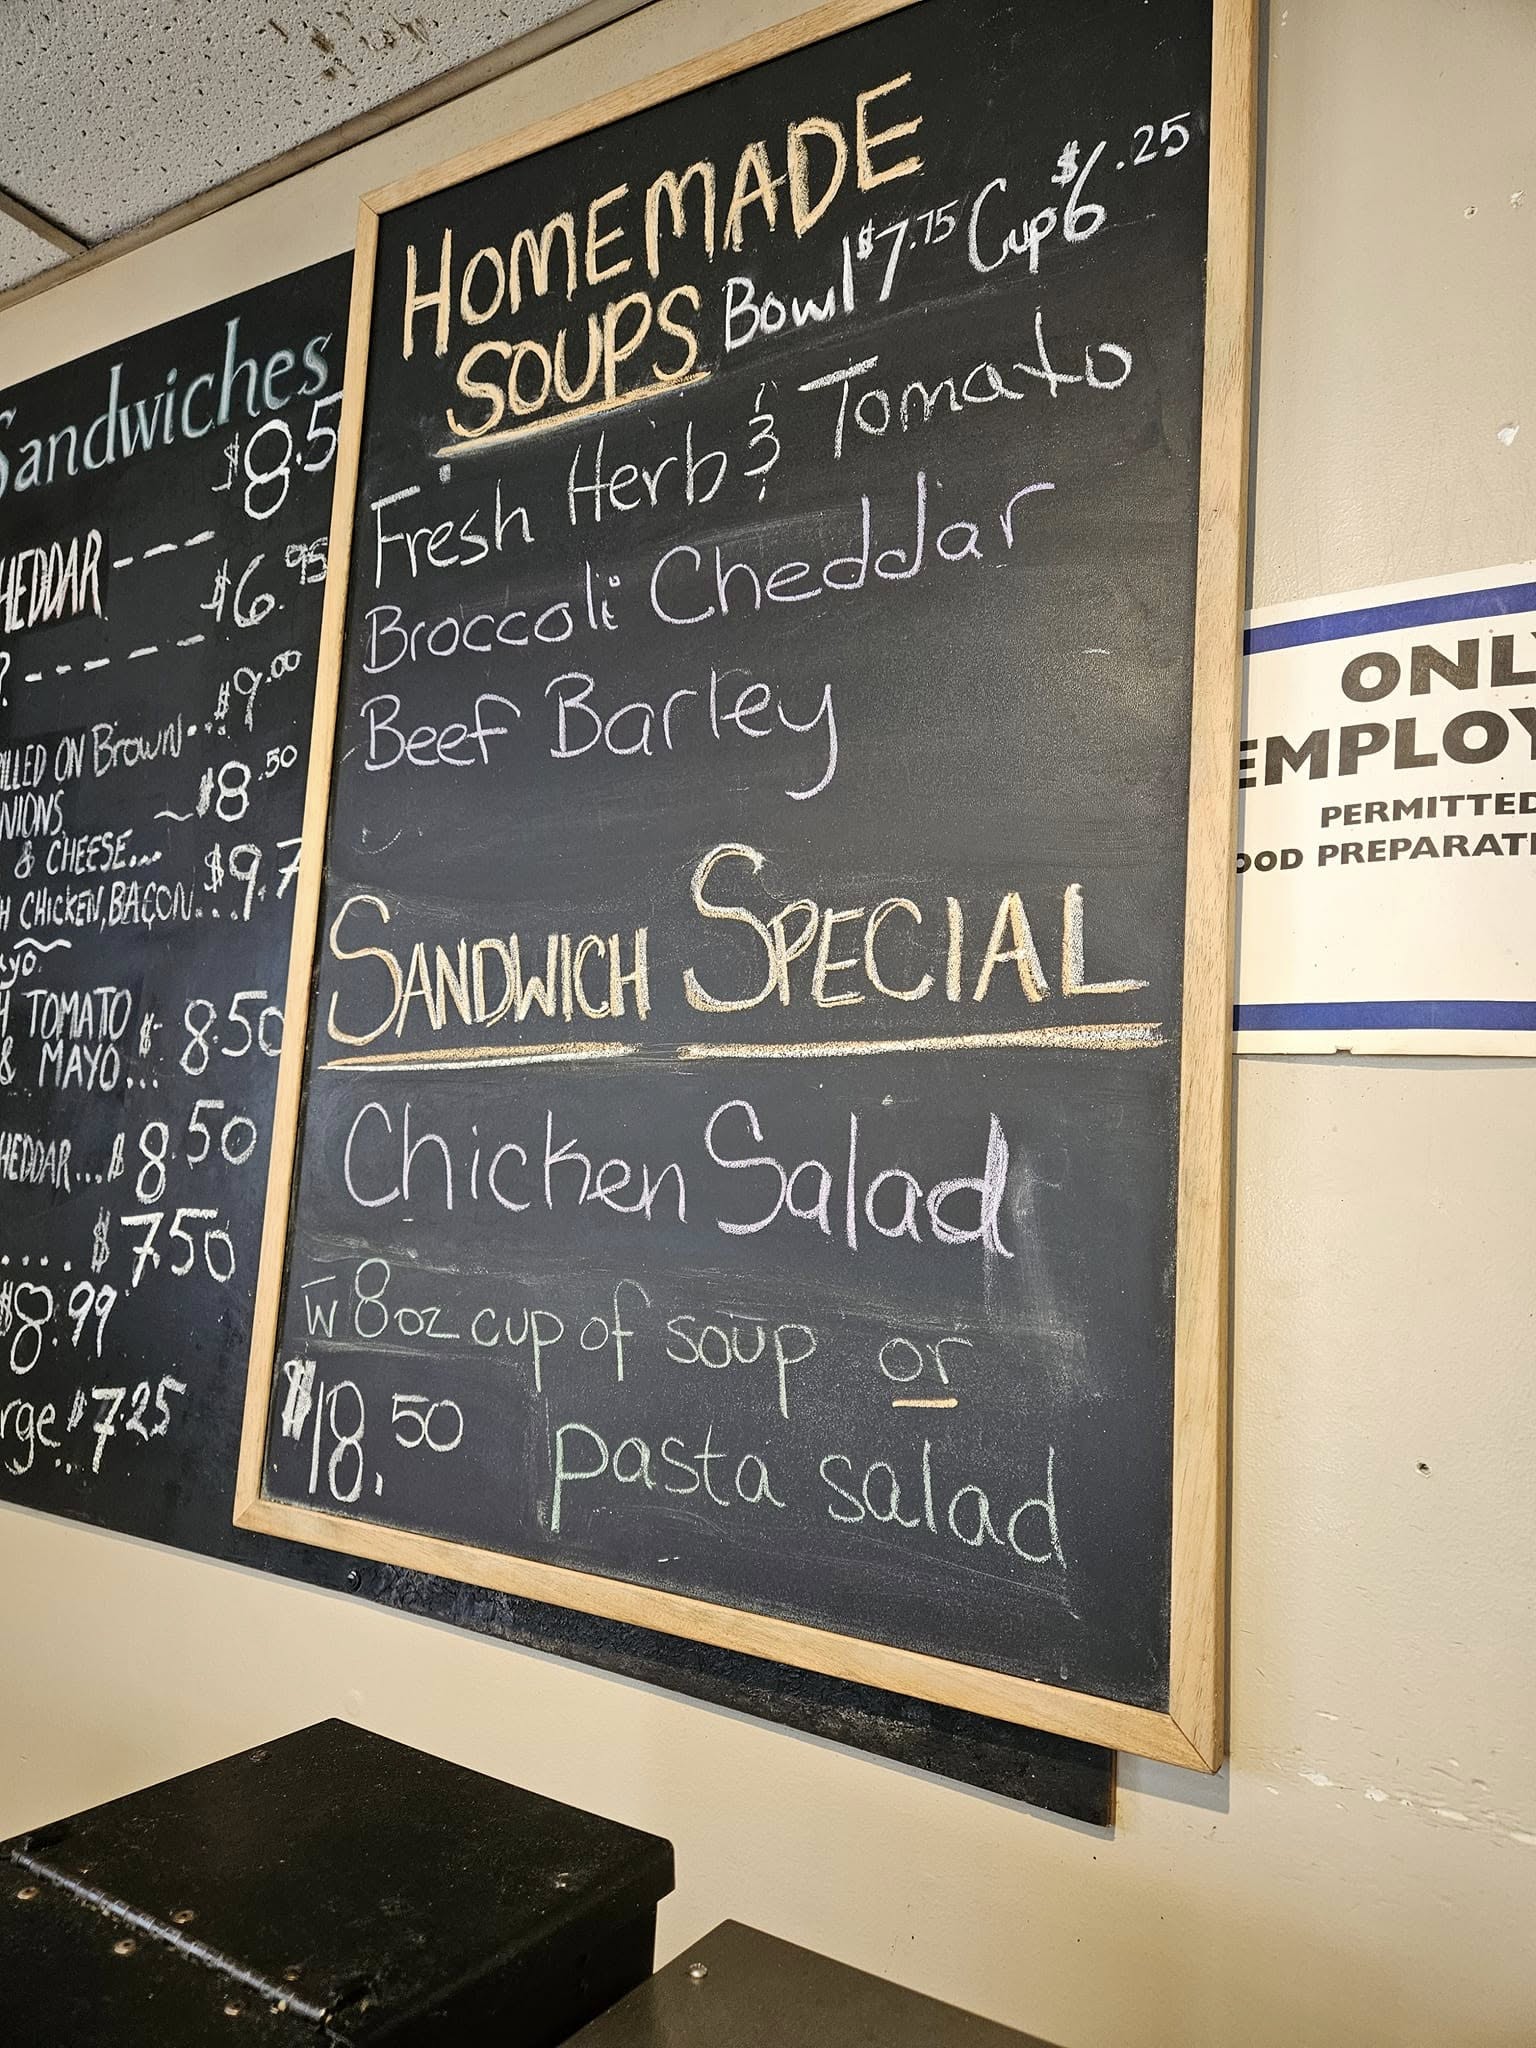 Sandwiches
$8.5
HEDDAR ----
$6.95
? ------
$9.00
ILLED ON Brown...
$8.50
NIONS,
& CHEESE...
$9.7
H CHICKEN, BACON...
ayo
H TOMATO
& MAYO... $8.50
HEDDAR... $8.50
.... $7.50
$8.99
rge $7.25
HOMEMADE
SOUPS Bowl $7.75 Cup $6.25
Fresh Herb & Tomato
Broccoli Cheddar
Beef Barley
SANDWICH SPECIAL
Chicken Salad
w 8oz cup of soup or
$18.50 pasta salad
ONL
EMPLOY
PERMITTED
OOD PREPARATI